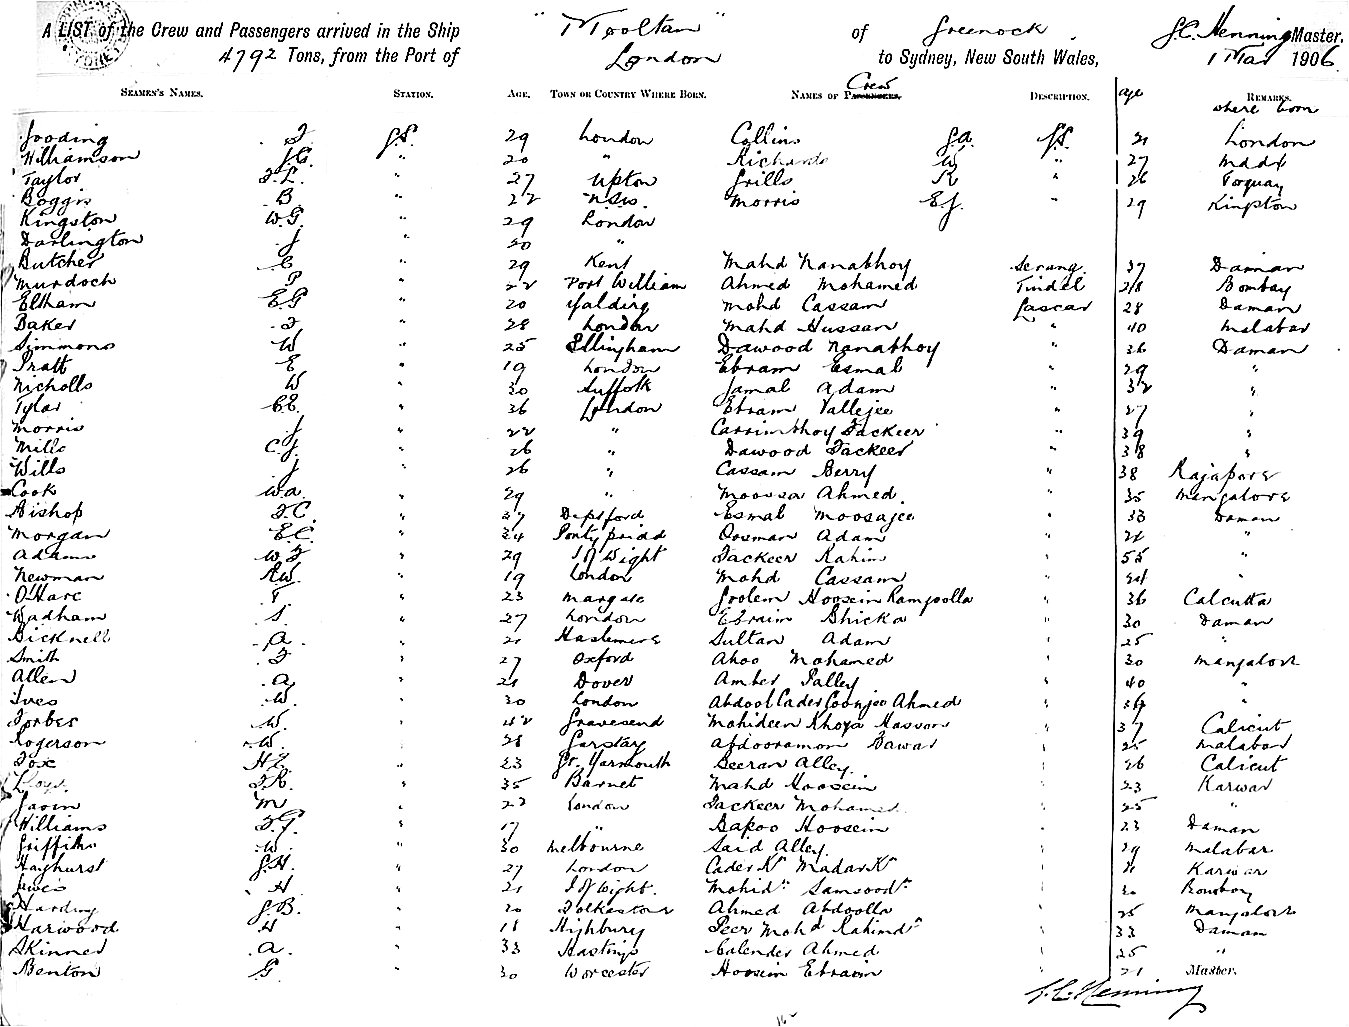 A LIST of the Crew and Passengers arrived in the Ship "Mooltan" of Greenock, S.C. Henning Master,
4792 Tons, from the Port of London to Sydney, New South Wales, 1 Mar 1906
SEAMEN'S NAMES. STATION. AGE. TOWN OR COUNTRY WHERE BORN. NAMES OF PASSENGERS. Crew DESCRIPTION. age REMARKS. where born
Gooding 29 London Collins G.A. 21 London
Williamson J.C. " 20 " Richards W " 27
Taylor F.L. " 27 Upton Grills R " 26 Torquay
Boggis B. " 22 N.S.W. Morris E.J. " 29 Kingston
Kingston W.G. " 29 London
Darlington J " 20 "
Butcher C " 29 Kent Mahd Nanabhoy Serang 37 Daman
Murdoch P " 22 Port William Ahmed Mohamed Tindel 28 Bombay
Eltham E.G " 20 Yalding Mohd Cassam Lascar 28 Daman
Baker " 28 London Mahd Hussan " 40 Malabar
Simmons W " 25 Ellingham Dawood Nanabhoy " 36 Daman
Pratt E " 19 London Ebram Esmal " 29 "
Nicholls W " 30 Suffolk Jamal Adam " 32 "
Tylar C.E. " 36 London Ebram Vallejee " 27 "
Morris J " 22 " Carrimbhoy Fackeer " 39 "
Mills C.J. " 26 " Dawood Fackeer " 38 "
Wills J " 26 " Cassam Berry " 38 Rajapore
Cook W.A. " 29 " Moossa Ahmed " 35 Mangalore
Bishop F.C. " 37 Deptford Esmal Moosajee " 33 Daman
Morgan E.C. " 34 Pontypridd Oosman Adam " "
Adams W.F " 29 I of Wight Fackeer Rahim " 55 "
Newman R.W. " 19 London Mohd Cassam " "
O'Hare T " 23 Margate Goolem Hoosein Rampoolla " 36 Calcutta
Wadham S. " 27 London Ebraim Shicka " 30 Daman
Bicknell A. " 21 Haslemere Sultan Adam " 25 "
Smith F " 27 Oxford Ahoo Mohamed " 30 Mangalore
Allen A " 21 Dover Amber Palley " 40 "
Ives W. " 30 London Abdool Cader Coonjee Ahmed " 36 "
Forbes W. " 42 Gravesend Mohideen Khoya Hassan " 37 Calicut
Rogerson W. " 28 Garstag Abdooramon Bawas " 25 Malabar
Fox H.E. " 23 Gt. Yarmouth Seeran Alley " 26 Calicut
F.R. " 35 Barnet Mahd Hoosein " 23 Karwar
Gavin M " 22 London Fackeer Mohamed " 25 "
Williams F.G. " 17 " Bapoo Hoosein " 23 Daman
Griffiths W. " 30 Melbourne Said Alley " 29 Malabar
Hayhurst G.H. " 27 London Cader Kn Madar Kn " 21 Karwar
Lewis H " 21 I of Wight. Mohidn Samsoodn " 30 Bombay
Harding G.B. " 20 Folkestone Ahmed Abdoolla " 25 Mangalore
Harwood H " 18 Highbury Peer Mohd Rahimdn " 33 Daman
Skinner A. " 33 Hastings Calender Ahmed " 25 "
Benton G. " 30 Worcester Hoosein Ebraim " 21 Master.
S.C. Henning